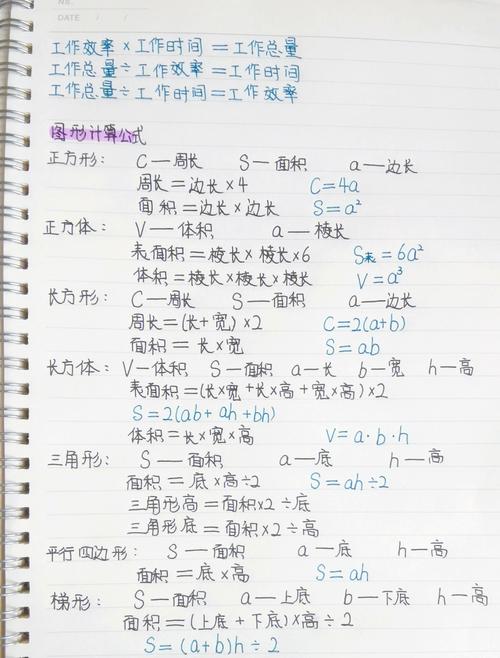 NO.
DATE / /
工作效率×工作时间=工作总量
工作总量÷工作效率=工作时间
工作总量÷工作时间=工作效率
图形计算公式
正方形: C—周长 S—面积 a—边长
周长=边长×4 C=4a
面积=边长×边长 S=a²
正方体: V—体积 a—棱长
表面积=棱长×棱长×6 S表=6a²
体积=棱长×棱长×棱长 V=a³
长方形: C—周长 S—面积 a—边长
周长=(长+宽)×2 C=2(a+b)
面积=长×宽 S=ab
长方体: V—体积 S—面积 a—长 b—宽 h—高
表面积=(长×宽+长×高+宽×高)×2
S=2(ab+ah+bh)
体积=长×宽×高 V=a·b·h
三角形: S—面积 a—底 h—高
面积=底×高÷2 S=ah÷2
三角形高=面积×2÷底
三角形底=面积×2÷高
平行四边形: S—面积 a—底 h—高
面积=底×高 S=ah
梯形: S—面积 a—上底 b—下底 h—高
面积=(上底+下底)×高÷2
S=(a+b)h÷2